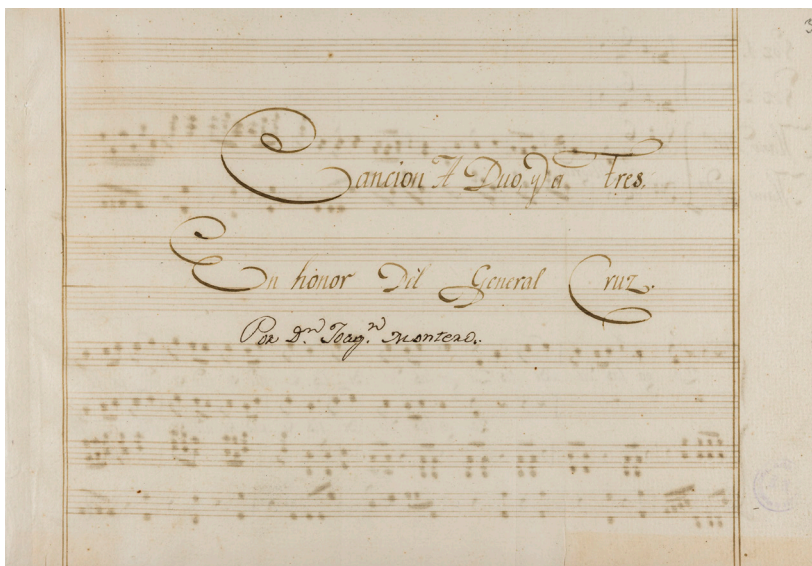 Cancion A Duo, y a Tres.
En honor Del General Cruz.
Por Dn. Joaqn. Montero.